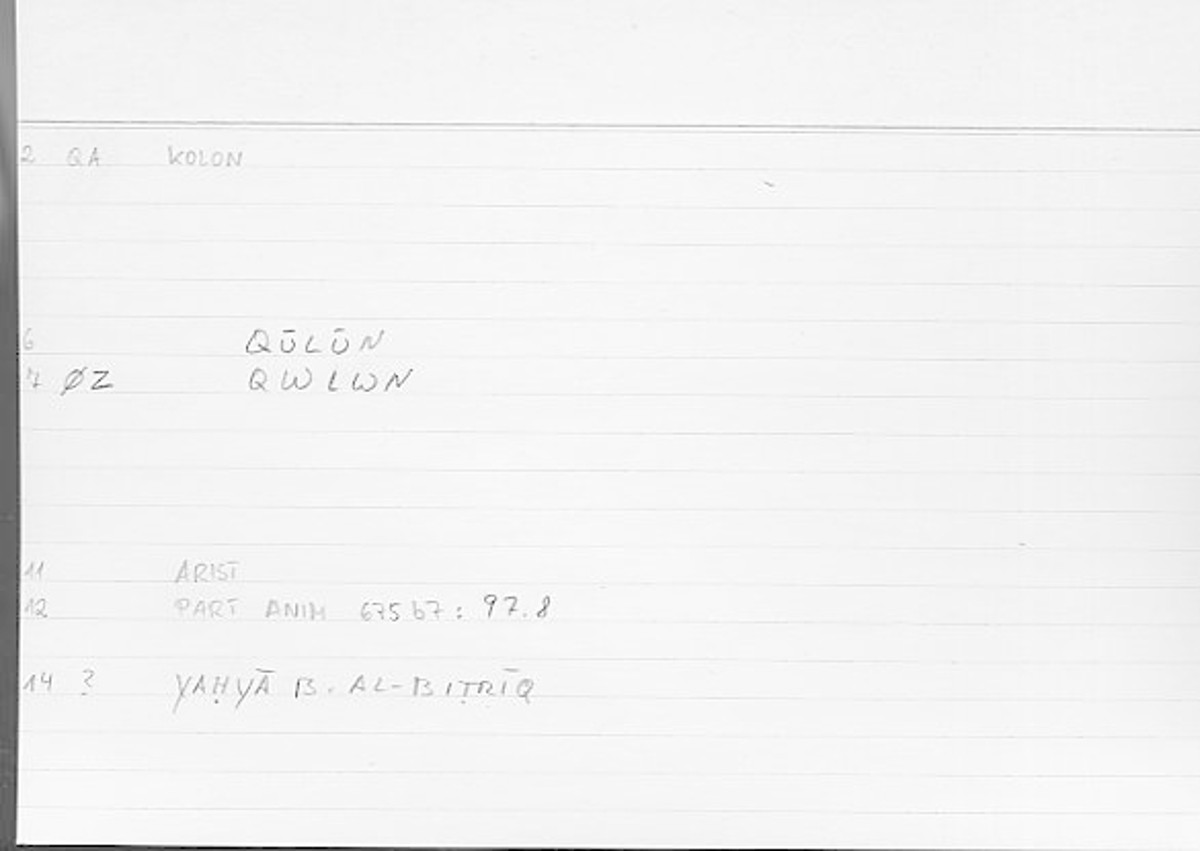 2 QA KOLON
6 QŪLŪN
7 ØZ QWLWN
11 ARIST
12 PART ANIM 675 b7 : 97.8
14 ? YAḤYĀ B. AL-BIṬRĪQ